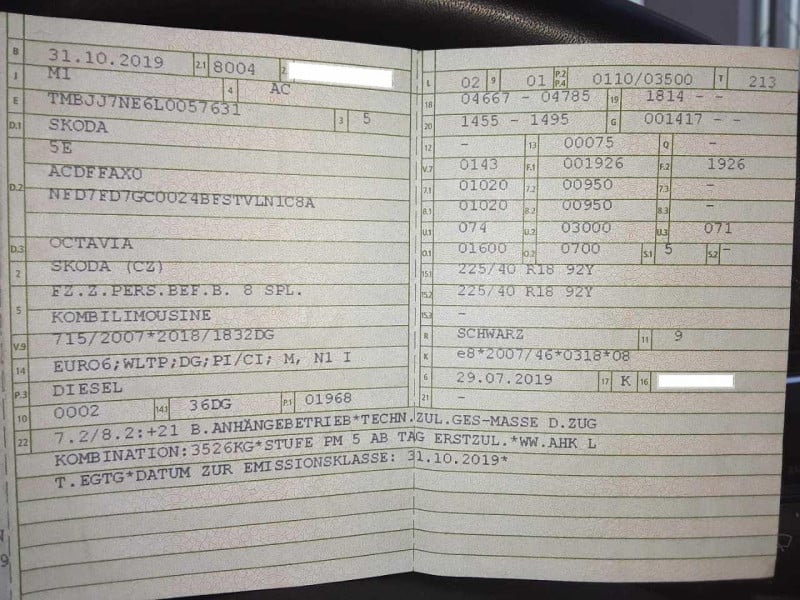 B 31.10.2019 2.1 8004 2.
J MI 4 AC
E TMBJJ7NE6L0057631 3 5
D.1 SKODA
5E
D.2 ACDFFAX0
NFD7FD7GC0024BFSTVLN1C8A
D.3 OCTAVIA
2 SKODA (CZ)
5 FZ.Z.PERS.BEF.B. 8 SPL.
KOMBILIMOUSINE
V.9 715/2007*2018/1832DG
14 EURO6;WLTP;DG;PI/CI; M, N1 I
P.3 DIESEL
10 0002 14.1 36DG P.1 01968
L 02 9 01 P.2 P.4 0110/03500 T 213
18 04667 - 04785 19 1814 - -
20 1455 - 1495 G 001417 - -
12 - 13 00075 Q -
V.7 0143 F.1 001926 F.2 1926
7.1 01020 7.2 00950 7.3 -
8.1 01020 8.2 00950 8.3 -
U.1 074 U.2 03000 U.3 071
O.1 01600 O.2 0700 S.1 5 S.2 -
15.1 225/40 R18 92Y
15.2 225/40 R18 92Y
15.3 -
R SCHWARZ 11 9
K e8*2007/46*0318*08
6 29.07.2019 17 K 16
21 -
22 7.2/8.2:+21 B.ANHÄNGEBETRIEB*TECHN.ZUL.GES-MASSE D.ZUG
KOMBINATION:3526KG*STUFE PM 5 AB TAG ERSTZUL.*WW.AHK L
T.EGTG*DATUM ZUR EMISSIONSKLASSE: 31.10.2019*